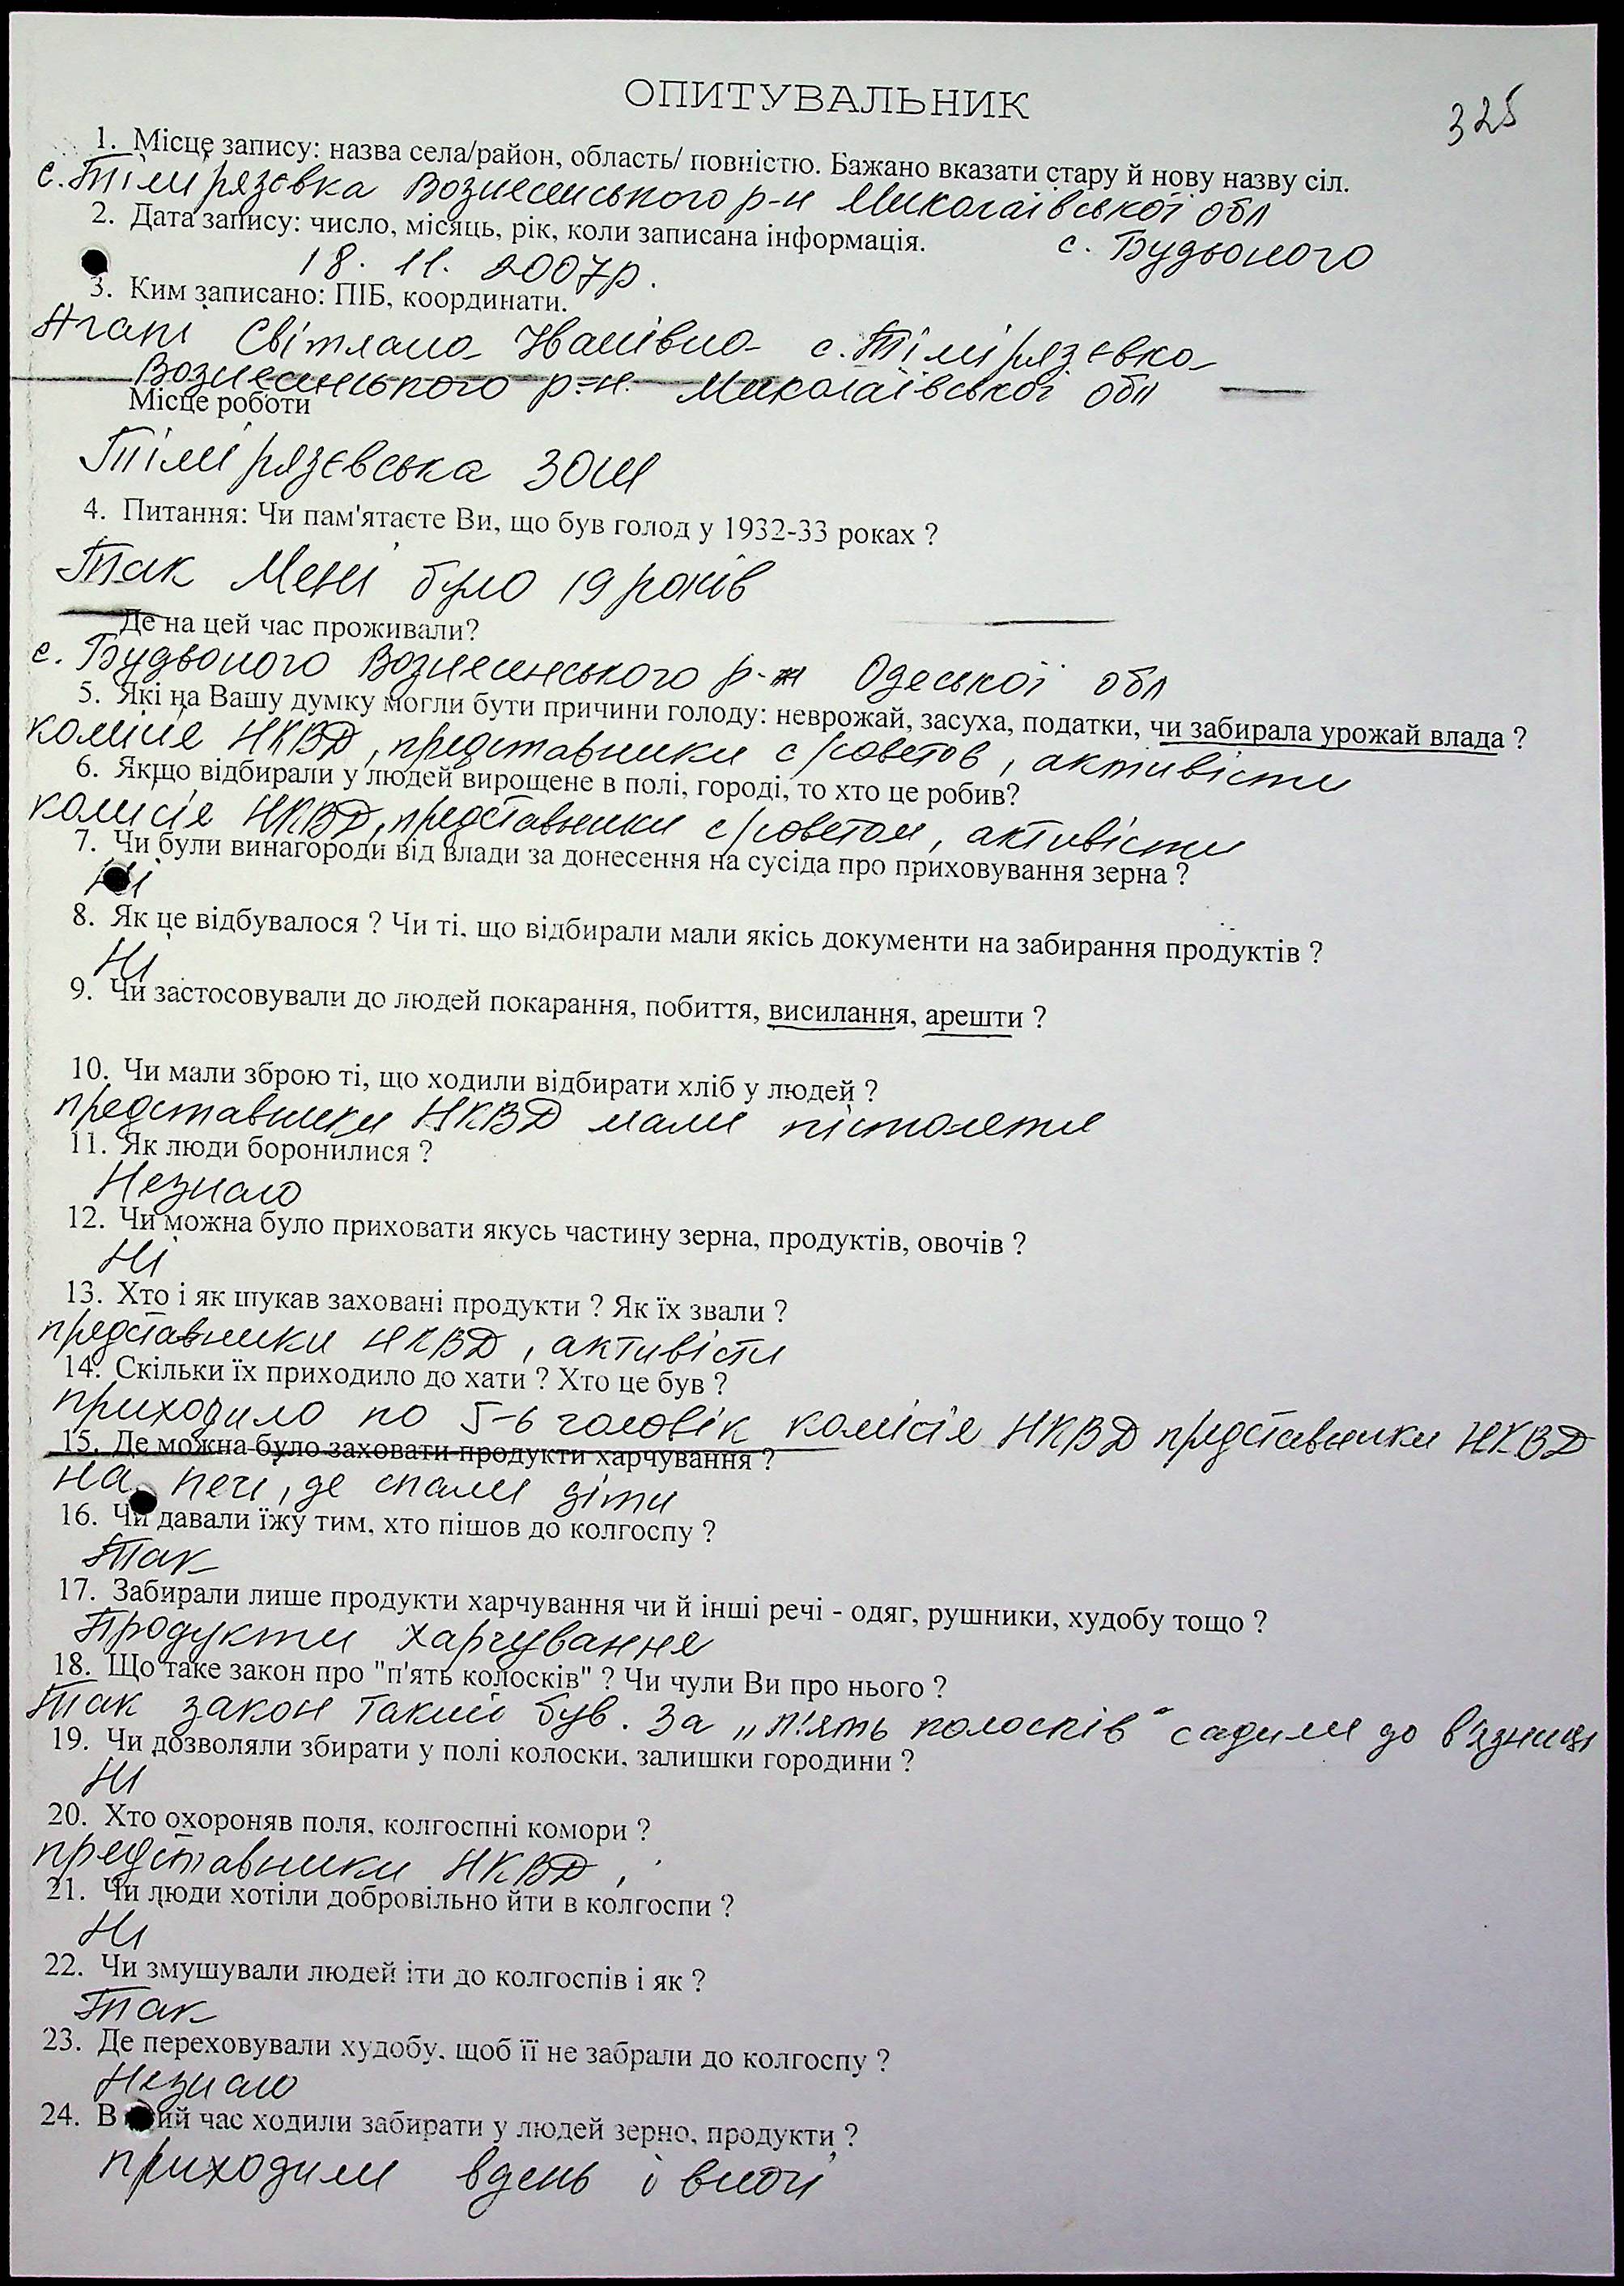 ОПИТУВАЛЬНИК
325
1. Місце запису: назва села/район, область/ повністю. Бажано вказати стару й нову назву сіл.
с. Тімірязєвка Вознесенського р-н Миколаївської обл
2. Дата запису: число, місяць, рік, коли записана інформація.
с. Будьоного
18. 11. 2007р.
3. Ким записано: ПІБ, координати.
Світлана Іванівна с. Тімірязєвка
Вознесенського р-н. Миколаївської обл
Місце роботи
Тімірязєвська ЗОШ
4. Питання: Чи пам'ятаєте Ви, що був голод у 1932-33 роках ?
Так Мені було 19 років
Де на цей час проживали?
с. Будьоного Вознесенського р-н Одеської обл
5. Які на Вашу думку могли бути причини голоду: неврожай, засуха, податки, чи забирала урожай влада ?
комісія НКВД, представники с/советов, активісти
6. Якщо відбирали у людей вирощене в полі, городі, то хто це робив?
комисія НКВД, представники с/советом, активісти
7. Чи були винагороди від влади за донесення на сусіда про приховування зерна ?
Ні
8. Як це відбувалося ? Чи ті, що відбирали мали якісь документи на забирання продуктів ?
Ні
9. Чи застосовували до людей покарання, побиття, висилання, арешти ?
10. Чи мали зброю ті, що ходили відбирати хліб у людей ?
представники НКВД мали пістолети
11. Як люди боронилися ?
Незнаю
12. Чи можна було приховати якусь частину зерна, продуктів, овочів ?
Ні
13. Хто і як шукав заховані продукти ? Як їх звали ?
представники НКВД, активісти
14. Скільки їх приходило до хати ? Хто це був ?
приходило по 5-6 чоловік комісія НКВД представники НКВД
15. Де можна було заховати продукти харчування ?
на печі, де спали діти
16. Чи давали їжу тим, хто пішов до колгоспу ?
Так
17. Забирали лише продукти харчування чи й інші речі - одяг, рушники, худобу тощо ?
Продукти харчування
18. Що таке закон про "п'ять колосків" ? Чи чули Ви про нього ?
Так закон такий був. За „п'ять колосків" садили до в'язниці
19. Чи дозволяли збирати у полі колоски, залишки городини ?
Ні
20. Хто охороняв поля, колгоспні комори ?
представники НКВД,
21. Чи люди хотіли добровільно йти в колгоспи ?
Ні
22. Чи змушували людей іти до колгоспів і як ?
Так
23. Де переховували худобу, щоб її не забрали до колгоспу ?
Незнаю
24. В ий час ходили забирати у людей зерно, продукти ?
приходили вдень і вночі